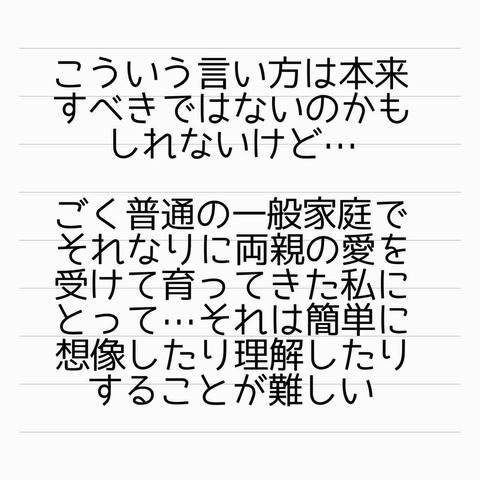 こういう言い方は本来
すべきではないのかも
しれないけど…
ごく普通の一般家庭で
それなりに両親の愛を
受けて育ってきた私に
とって…それは簡単に
想像したり理解したり
することが難しい